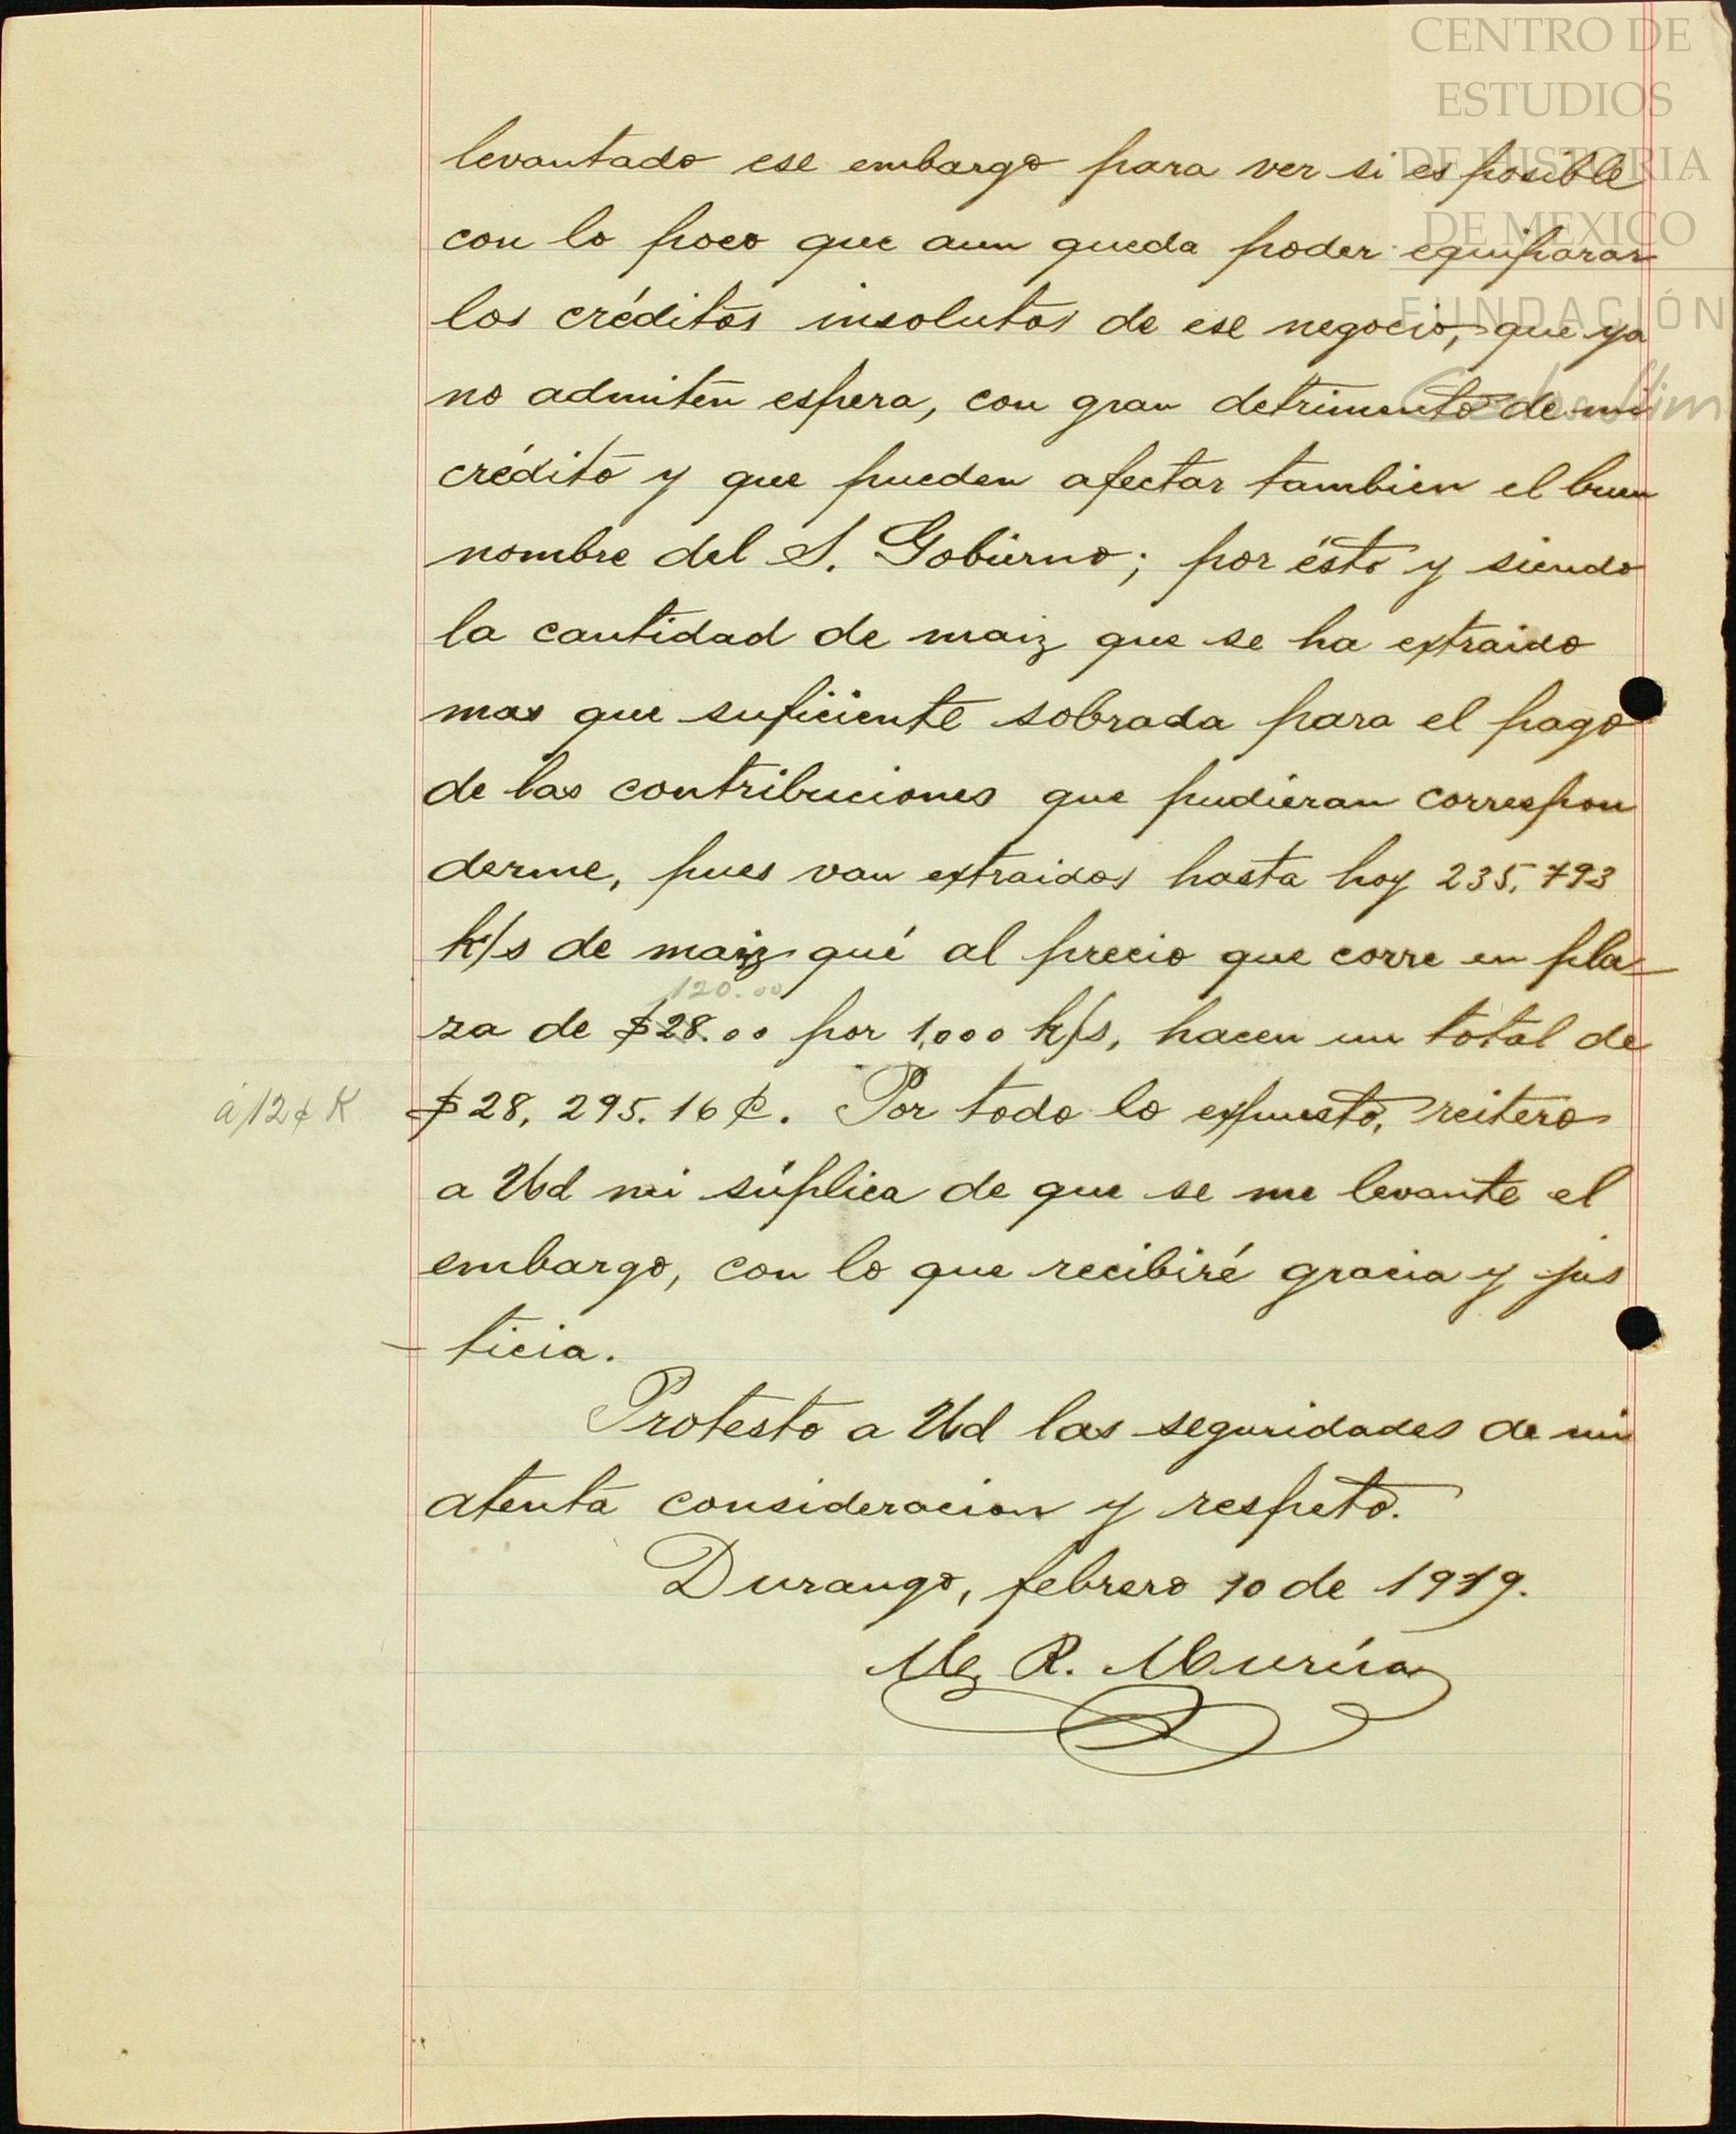 CENTRO DE
ESTUDIOS
DE HISTORIA
DE MEXICO
FUNDACIÓN
levantado ese embargo para ver si es posible
con lo poco que aun queda poder equiparar
los créditos insolutos de ese negocio, que ya
no admiten espera, con gran detrimento de mi
crédito y que pueden afectar tambien el buen
nombre del S. Gobierno; por ésto y siendo
la cantidad de maiz que se ha extraido
mas que suficiente sobrada para el pago
de las contribuciones que pudieran correspon
derme, pues van extraidos hasta hoy 235,793
k/s de maiz qué al precio que corre en pla-
120.00
za de $28.00 por 1,000 k/s, hacen un total de
á 12¢ K $28,295.16 ₵. Por todo lo expuesto, reitero
a Ud mi súplica de que se me levante el
embargo, con lo que recibiré gracia y jus
- ticia.
Protesto a Ud las seguridades de mi
atenta consideracion y respeto.
Durango, febrero 10 de 1919.
R. Murúa